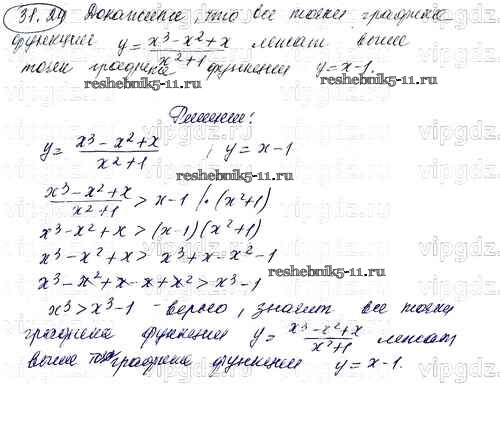 31.29 Докажите, что все точки графика
функции y = x³ - x² + x / x² + 1 лежат выше
точек графика функции y = x - 1.
reshebnik5-11.ru
reshebnik5-11.ru
Решение:
y = x³ - x² + x / x² + 1 ; y = x - 1
reshebnik5-11.ru
x³ - x² + x / x² + 1 > x - 1 | · (x² + 1)
x³ - x² + x > (x - 1)(x² + 1)
x³ - x² + x > x³ + x - x² - 1
x³ - x² + x - x + x² > x³ - 1
reshebnik5-11.ru
x³ > x³ - 1 - верно, значит все точки
графика функции y = x³ - x² + x / x² + 1 лежат
выше графика функции y = x - 1.
vipgdz.ru